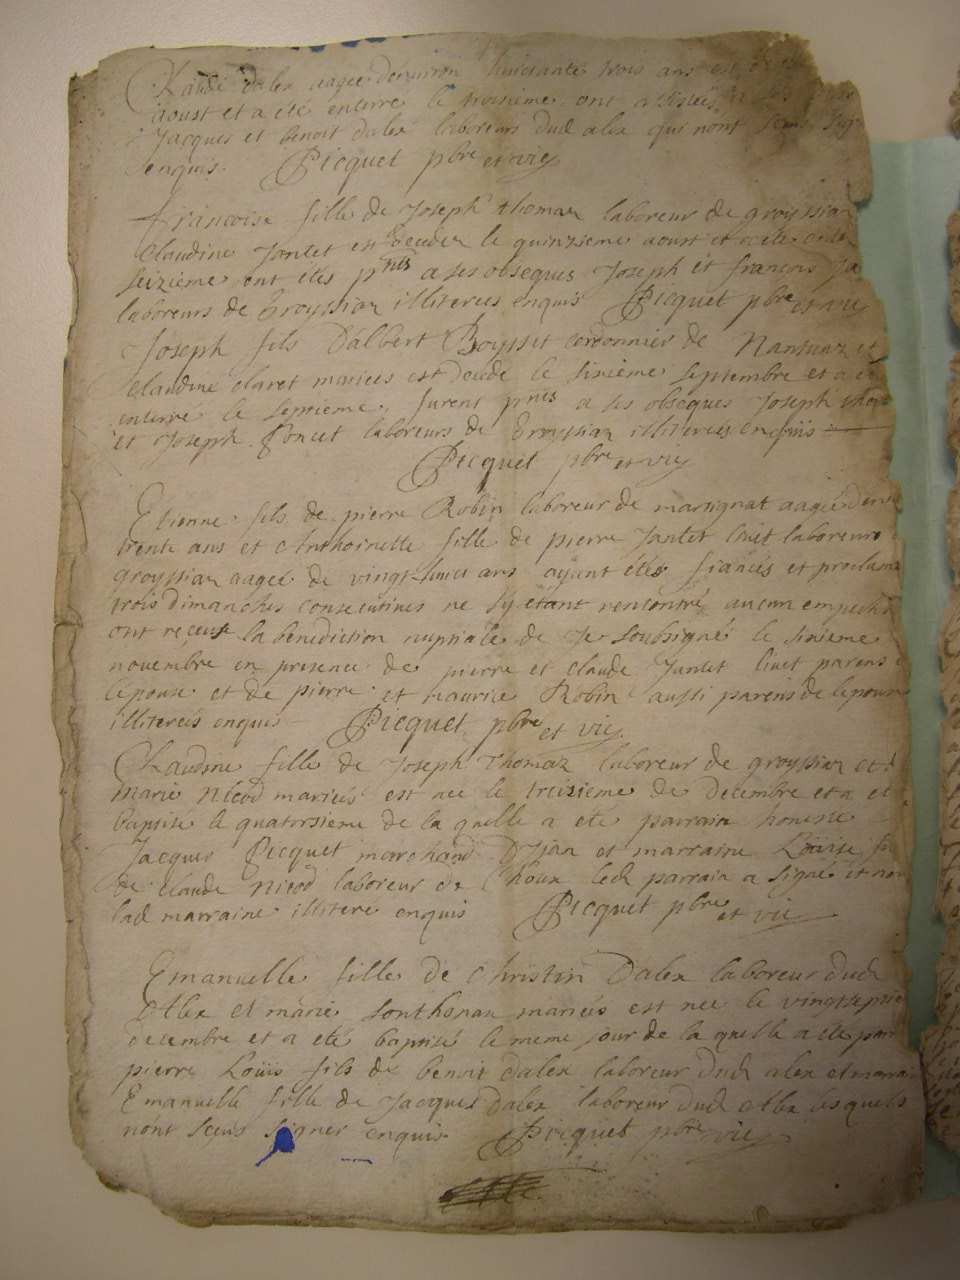 Claude dalex aagee denviron huictante trois ans est
aoust et a eté enterre le troisieme ont assistés
Jacques et benoit dalex laboreurs dud alex qui nont sceus sig
enquis. Picquet pbre et vic
francoise fille de Joseph thomaz laboreur de groyssiaz
Claudine Jantet est decedee le quinzieme aoust et a ete
seizieme ont etes pnts a ses obseques Joseph et francois Ja
laboreurs de Groyssiaz illiterees enquis Picquet pbre et vic
Joseph fils D'albert Boysset cordonnier de Nantuaz et
Claudine Claret mariees est decede le sixieme septembre et a
enterre le septieme, furent pnts a ses obseques Joseph tho
et Joseph Poncet laboreurs de Groyssiaz illiterees enquis
Picquet pbre et vic
Etienne fils de pierre Robin laboreur de martignat aagé d'env
trente ans et Anthoinette fille de pierre Jantet laboreur
groyssiaz aagee de vingt huict ans ayant étés fiancés et proclamé
trois dimanches consecutives ne s'y etant rencontré aucun empeche
ont receus la benediction nuptiale de Je soubsigné le sixieme
novembre en presence de pierre et claude Jantet parens
lepouse et de pierre et maurice Robin aussi parens de lepoux
illiterees enquis Picquet pbre et vic
Claudine fille de Joseph Thomaz laboreur de groyssiaz et d
marie nicod mariés est née le treisieme de decembre et a e
baptise le quatorsieme de la quelle a eté parrain honeste
Jacques Picquet marchand D'Jzar et marraine Loüise fi
de claude nicod laboreur de Choux led parrain a signé et non
lad marraine illitere enquis Picquet pbre et vic
Emanuelle fille de Christin Dalex laboreur dud
Alex et marie sonthonax mariés est nee le vingtseptie
decembre et a eté baptisé le meme jour de la quelle a ete par
pierre Loüis fils de benoit dalex laboreur dud alex et marrai
Emanuelle fille de Jacques Dalex laboreur dud Alex lesquels
nont sceus signer enquis Picquet pbre vic